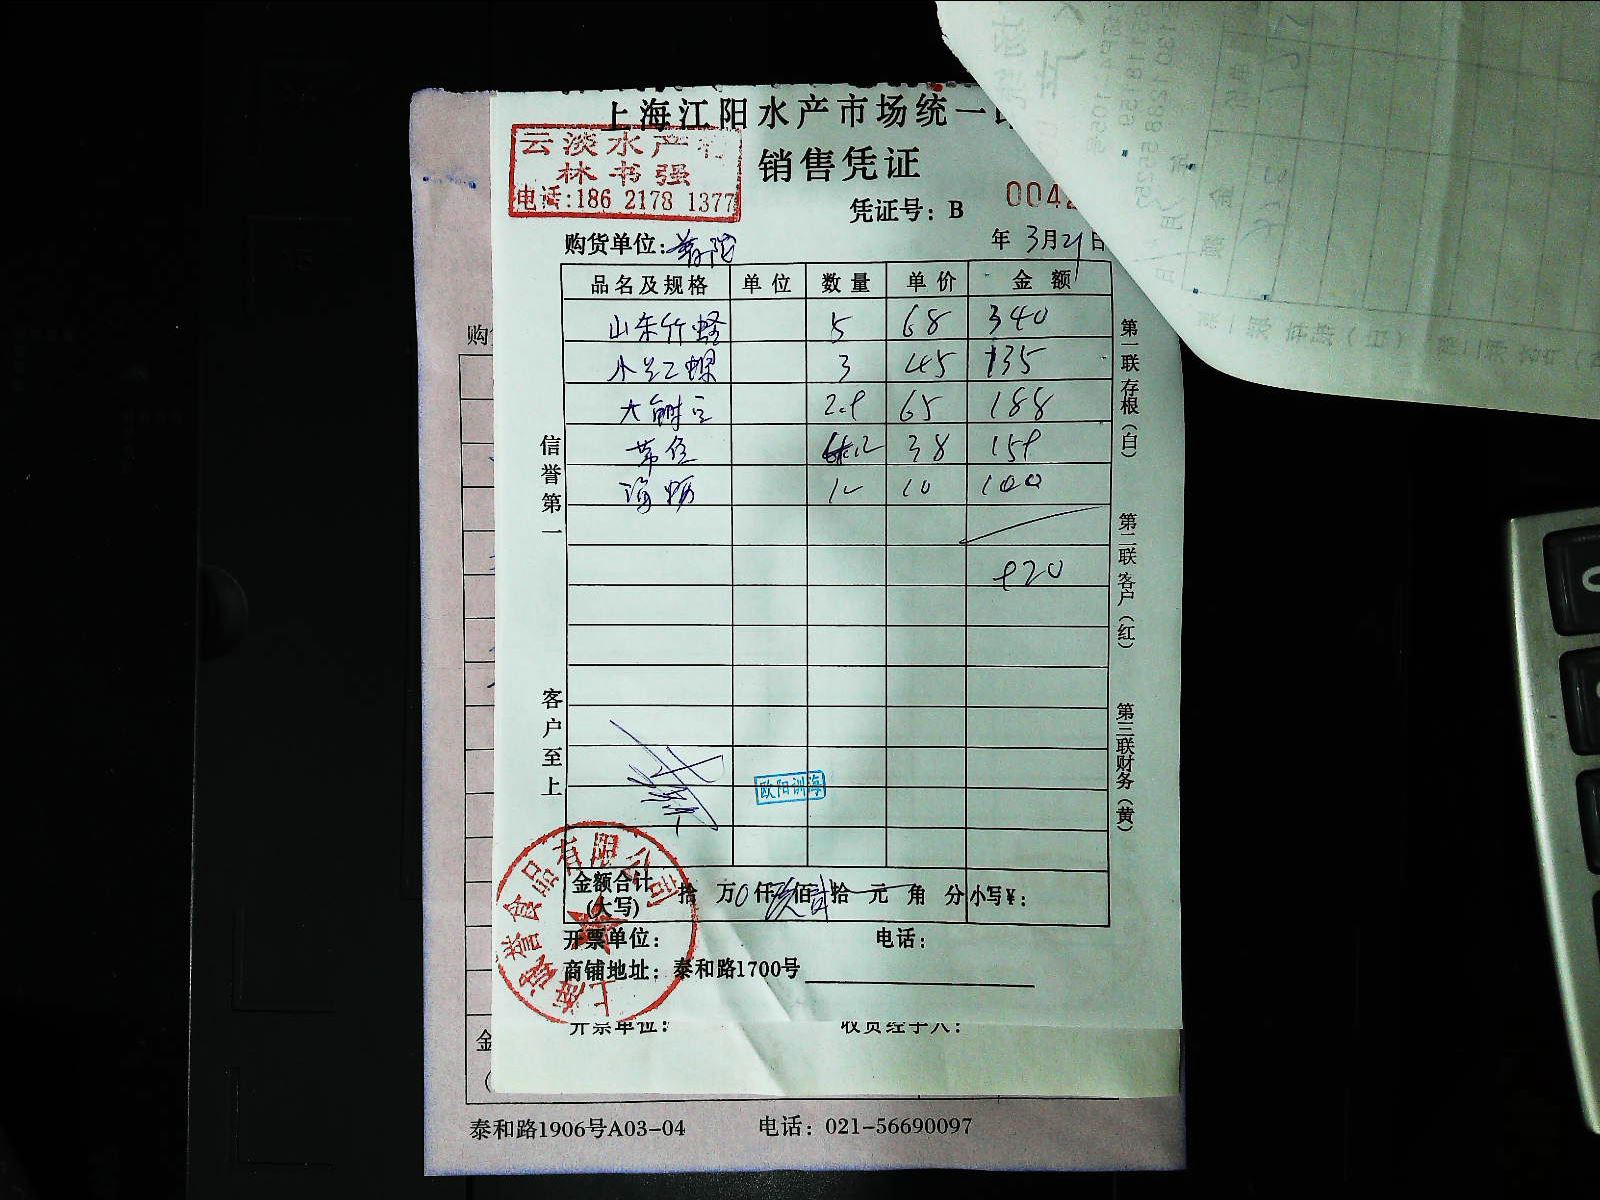 上海江阳水产市场统一
云淡水产
林书强
电话:186 2178 1377
销售凭证
凭证号：B 004
购货单位：普陀
年 3月21日
品名及规格 单位 数量 单价 金额
山东竹蛏 5 68 340
小兰工螺 3 45 135
大 2.9 65 188
带鱼 4.2 38 159
海蛎 10 100
920
信誉第一
客户至上
第一联存根（白）
第二联客户（红）
第三联财务（黄）
欧阳训海
金额合计(大写) 拾 万 0 仟 玖 佰 贰 拾 元 角 分 小写¥：
开票单位： 电话：
商铺地址：泰和路1700号
上海诚誉食品有限公司
开票单位： 收货经手人：
购
金
泰和路1906号A03-04 电话：021-56690097